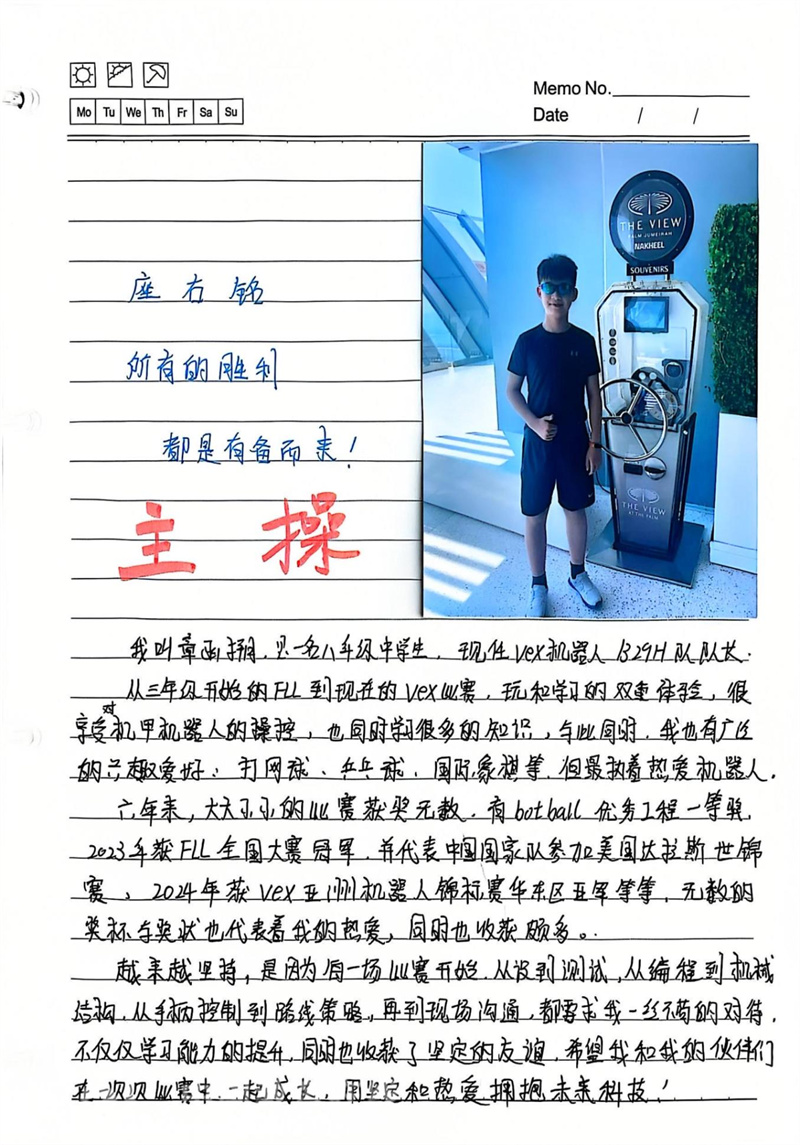 Memo No.
Mo Tu We Th Fr Sa Su
Date / /
THE VIEW
PALM JUMEIRAH
NAKHEEL
SOUVENIRS
THE VIEW
AT THE PALM
座右铭
所有的胜利
都是有备而来!
主操
我叫章, 是一名八年级中学生, 现任vex机器人1329H队队长.
从三年级开始的FLL到现在的vex比赛, 玩和学习的双重体验, 很
享受对机甲机器人的操控, 也同时学习很多的知识, 与此同时, 我也有广泛
的兴趣爱好: 打网球、乒乓球、国际象棋等, 但最执着热爱机器人.
六年来, 大大小小的比赛获奖无数. 有botball 优秀工程一等奖,
2023年获FLL全国大赛冠军, 并代表中国国家队参加美国达拉斯世锦
赛、2024年获vex亚洲机器人锦标赛华东区亚军等等, 无数的
奖杯与奖状也代表着我的热爱, 同时也收获颇多。
越来越坚持, 是因为每一场比赛开始, 从设到测试, 从编程到机械
结构, 从手柄控制到路线策略, 再到现场沟通, 都要求我一丝不苟的对待.
不仅仅学习能力的提升, 同时也收获了坚定的友谊, 希望我和我的伙伴们
在一次次比赛中, 一起成长, 用坚定和热爱拥抱未来科技!